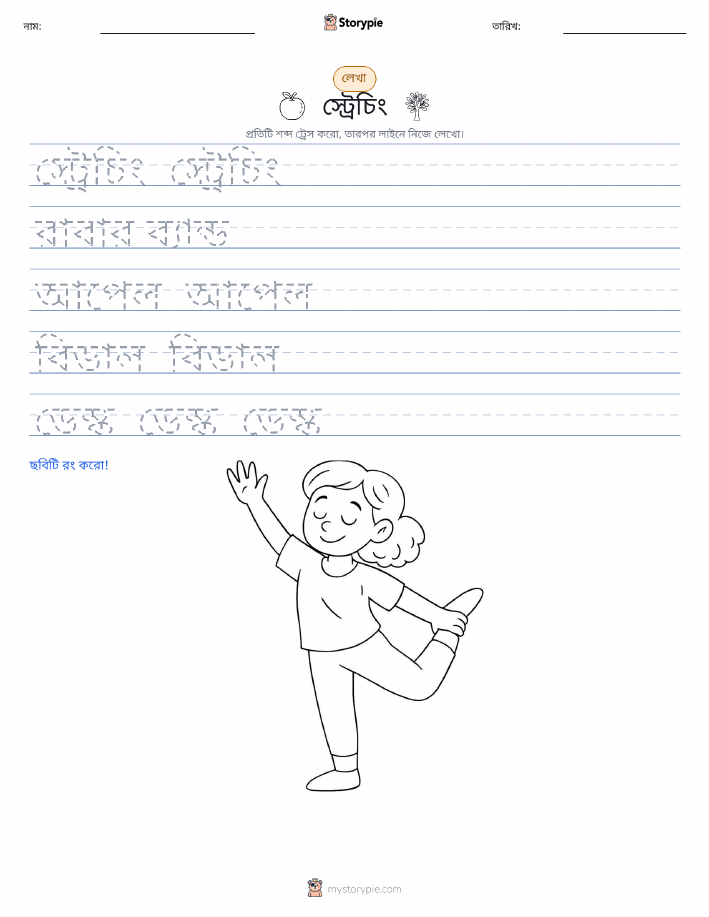 নাম:
Storypie
তারিখ:
লেখা
স্ট্রেচিং
প্রতিটি শব্দ ট্রেস করো, তারপর লাইনে নিজে লেখো।
স্ট্রেচিং স্ট্রেচিং
রাবার ব্যান্ড
আপেল আপেল
বিড়াল বিড়াল
ডেস্ক ডেস্ক ডেস্ক
ছবিটি রং করো!
mystorypie.com